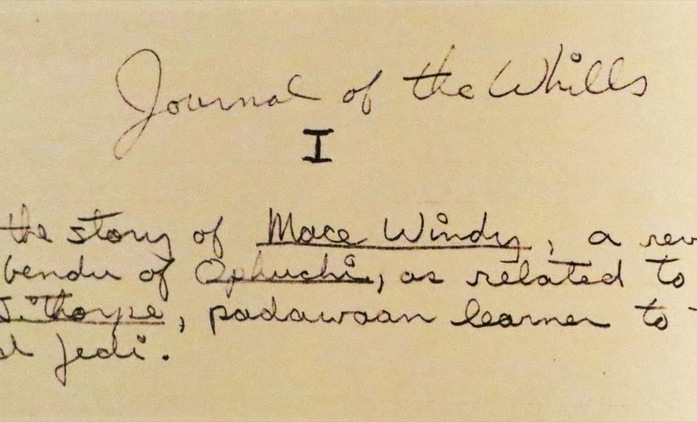 Journal of the Whills
I
the story of Mace Windy, a rev
bendu of Ophuchi, as related to
J. Thorpe, padawaan learner to
d Jedi.